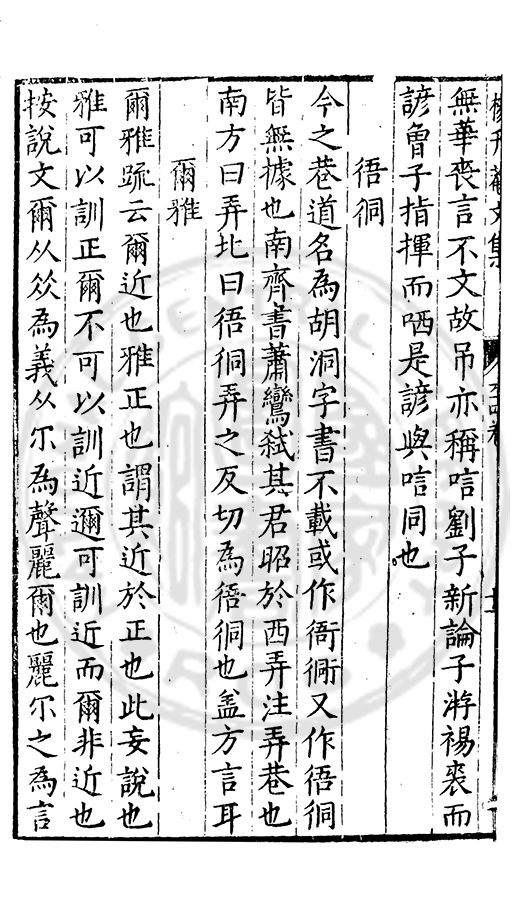 無華喪言不文故吊亦稱唁劉子新論子游裼裘而
諺曾子指揮而哂是諺與唁同也
㣔徊
今之巷道名為胡洞字書不載或作衙衕又作㣔徊
皆無據也南齊書蕭鸞弒其君昭於西弄注弄巷也
南方曰弄北曰㣔徊弄之反切為㣔徊也蓋方言耳
爾雅
爾雅疏云爾近也雅正也謂其近於正也此妄說也
雅可以訓正爾不可以訓近邇可訓近而爾非近也
按說文爾从㸚為義从尒為聲麗爾也麗尒之為言